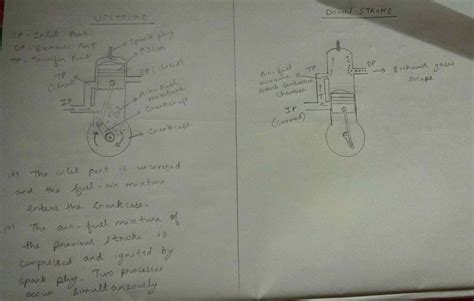 UPSTROKE
IP - Inlet Port
EP - Exhaust Port
TP - Transfer Port
spark plug
Piston
EP (closed)
TP
(closed)
IP
Air-fuel
mixture
Crankshaft
Crankcase
i) The inlet port is uncovered
and the fuel-air mixture
enters the crankcase.
ii) The air-fuel mixture of
the previous stroke is
compressed and ignited by
spark plug. Two processes
occur simultaneously
DOWN STROKE
Air-fuel
mixture
enters combustion
chamber
TP
EP
Exhaust gases
escape
IP
(covered)